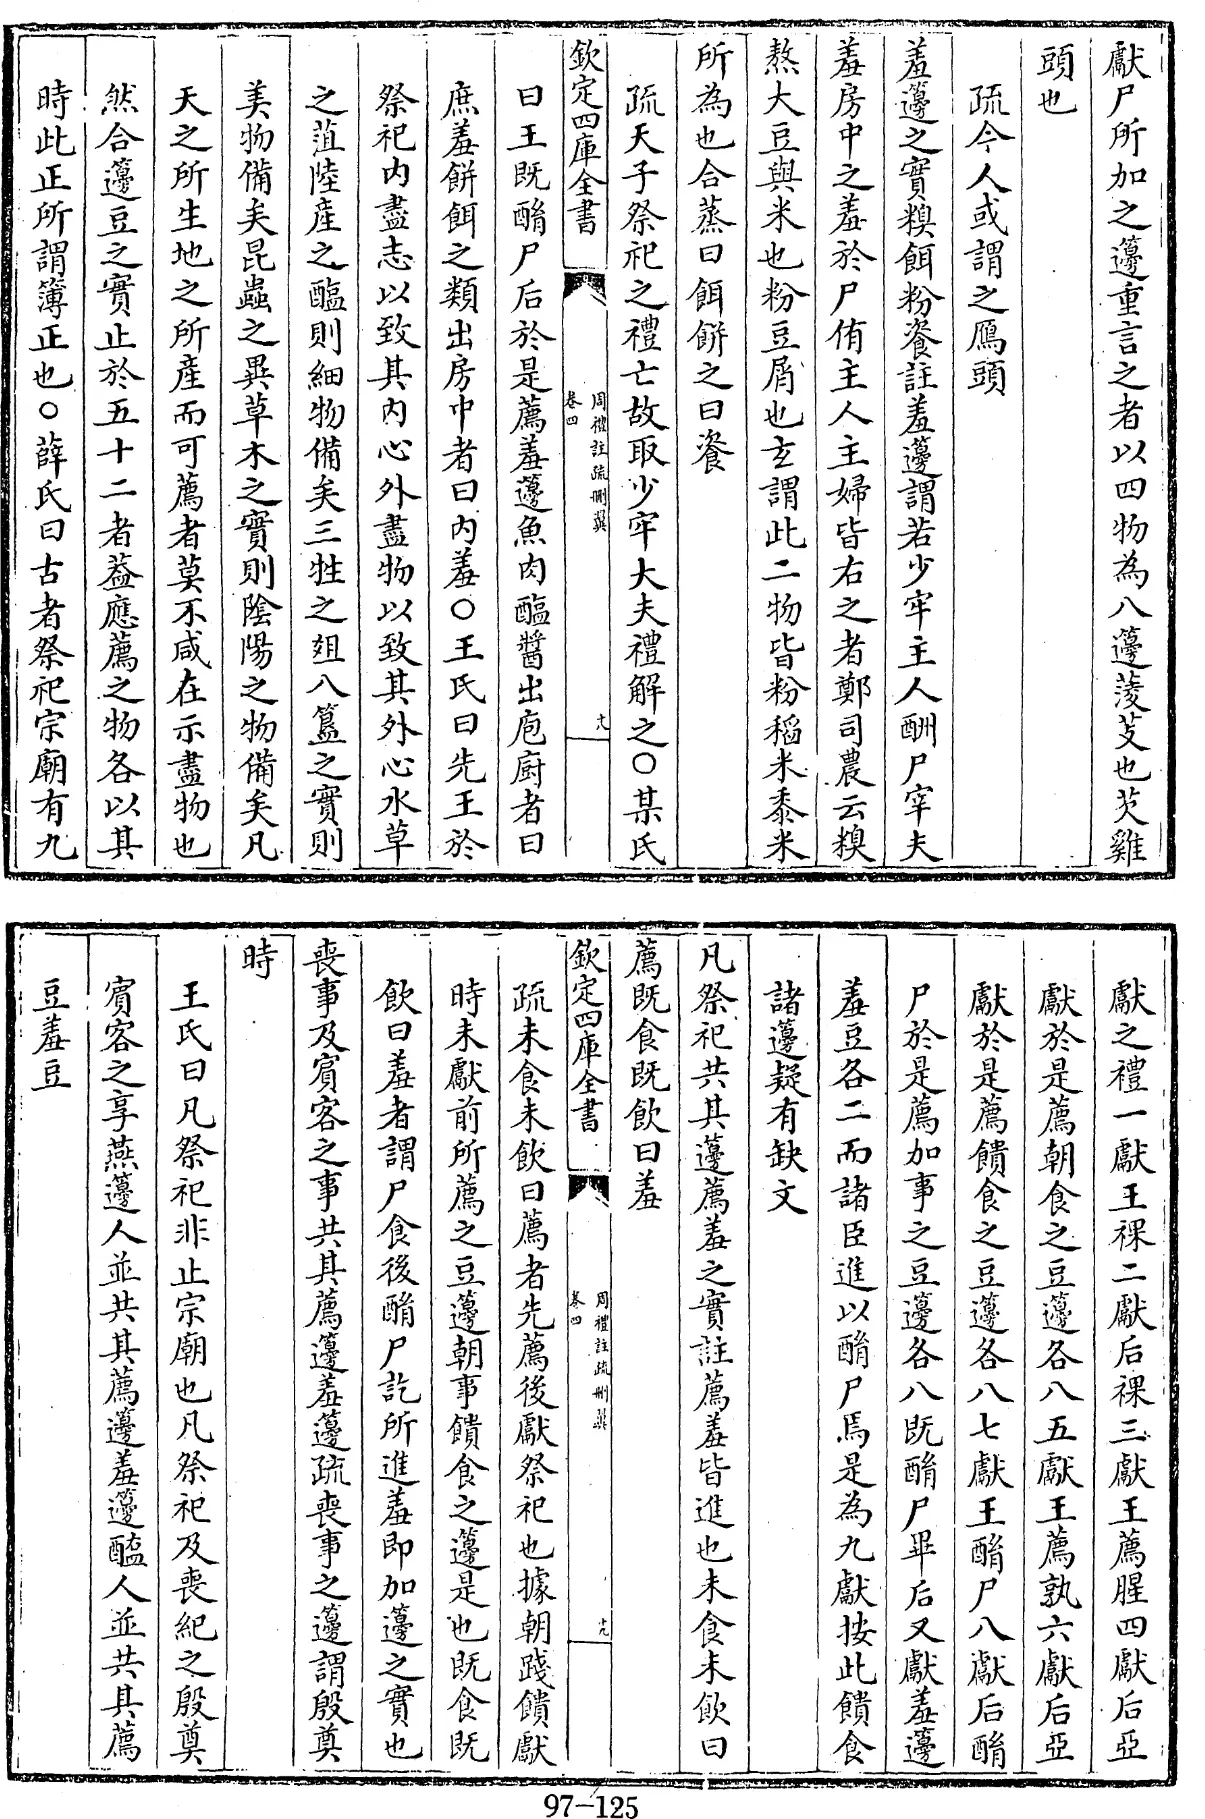 獻尸所加之籩重言之者以四物為八籩蓤芡也芡雞
頭也
疏今人或謂之鴈頭
羞籩之實糗餌粉餈註羞籩謂若少牢主人酬尸宰夫
羞房中之羞於尸侑主人主婦皆右之者鄭司農云糗
熬大豆與米也粉豆屑也玄謂此二物皆粉稻米黍米
所為也合蒸曰餌餅之曰餈
疏天子祭祀之禮亡故取少牢大夫禮解之○某氏
欽定四庫全書
周禮註疏刪翼
卷四
十八
曰王既酳尸后於是薦羞籩魚肉醢醬出庖厨者曰
庶羞餅餌之類出房中者曰内羞○王氏曰先王於
祭祀内盡志以致其内心外盡物以致其外心水草
之菹陸產之醢則細物備矣三牲之俎八簋之實則
美物備矣昆蟲之異草木之實則陰陽之物備矣凡
天之所生地之所產而可薦者莫不咸在示盡物也
然合籩豆之實止於五十二者葢應薦之物各以其
時此正所謂簿正也○薛氏曰古者祭祀宗廟有九
獻之禮一獻王祼二獻后祼三獻王薦腥四獻后亞
獻於是薦朝食之豆籩各八五獻王薦孰六獻后亞
獻於是薦饋食之豆籩各八七獻王酳尸八獻后酳
尸於是薦加事之豆籩各八既酳尸畢后又獻羞籩
羞豆各二而諸臣進以酳尸焉是為九獻按此饋食
諸籩疑有缺文
凡祭祀共其籩薦羞之實註薦羞皆進也未食未飲曰
薦既食既飲曰羞
欽定四庫全書
周禮註疏刪翼
卷四
十九
疏未食未飲曰薦者先薦後獻祭祀也據朝踐饋獻
時未獻前所薦之豆籩朝事饋食之籩是也既食既
飲曰羞者謂尸食後酳尸訖所進羞即加籩之實也
喪事及賓客之事共其薦籩羞籩疏喪事之籩謂殷奠
時
王氏曰凡祭祀非止宗廟也凡祭祀及喪紀之殷奠
賓客之享燕籩人並共其薦籩羞籩醢人並共其薦
豆羞豆
97-125